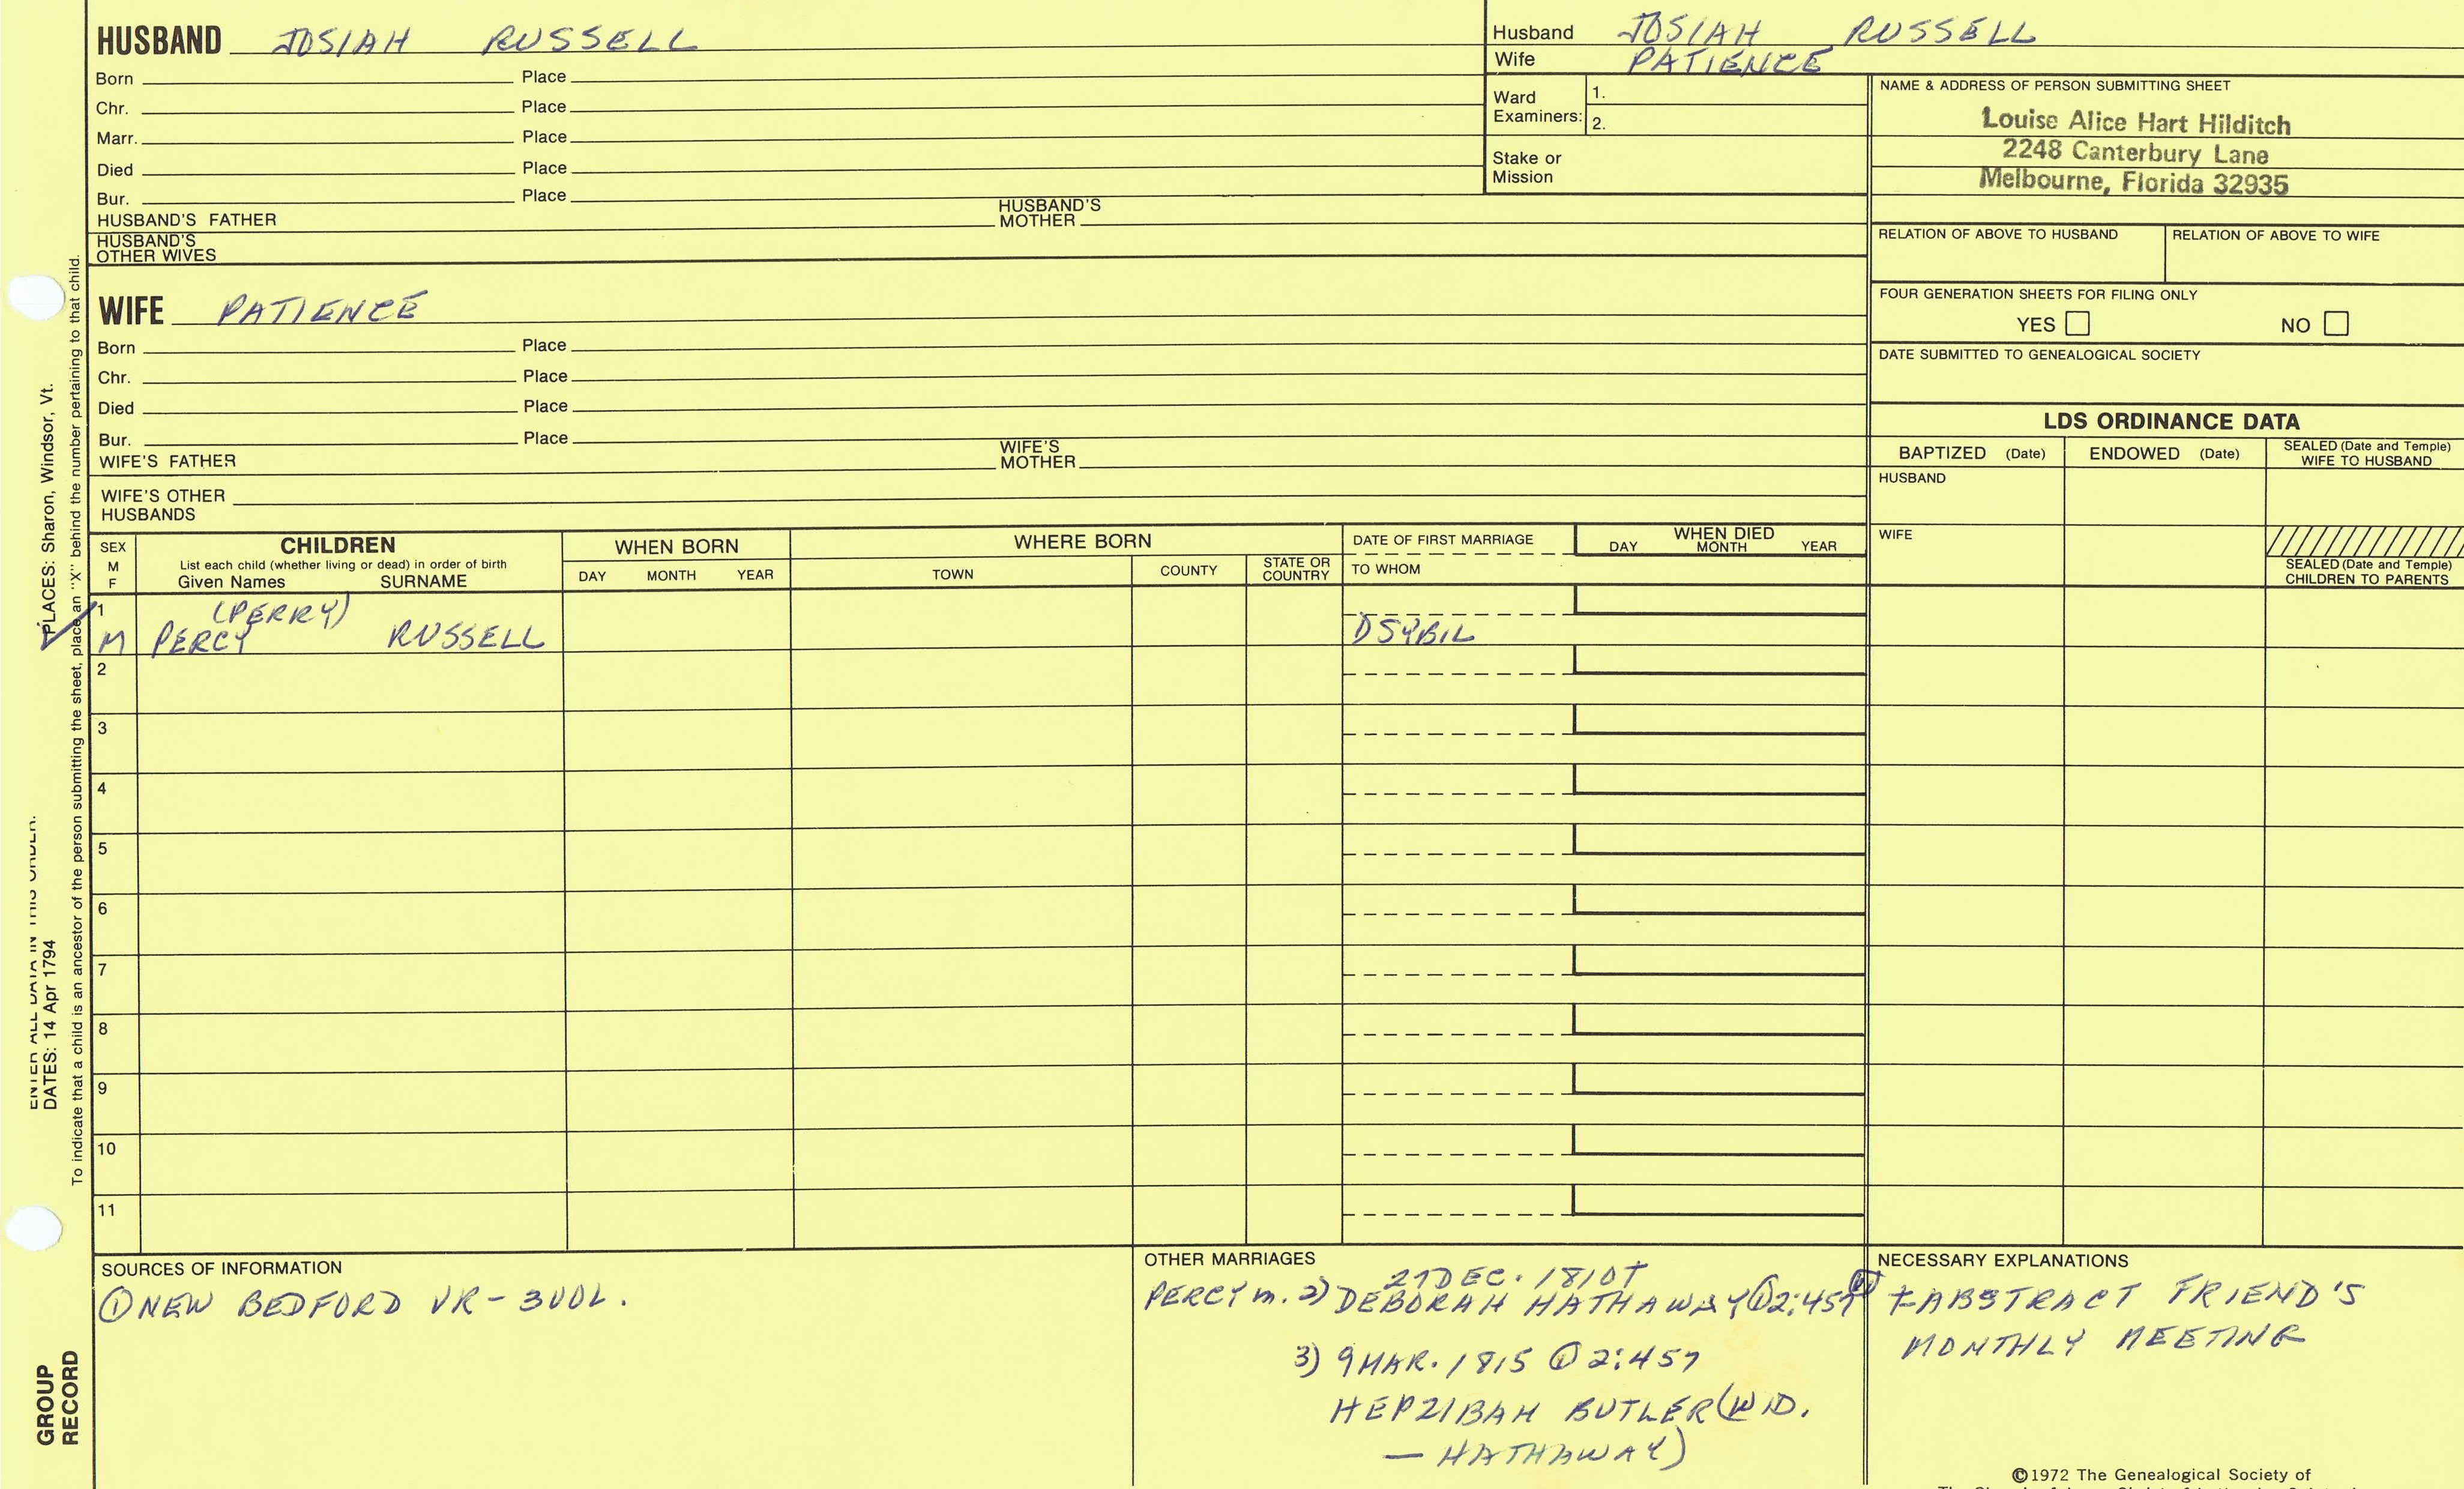 HUSBAND JOSIAH RUSSELL
Born Place
Chr. Place
Marr. Place
Died Place
Bur. Place
HUSBAND'S FATHER HUSBAND'S MOTHER
HUSBAND'S OTHER WIVES
Husband JOSIAH RUSSELL
Wife PATIENCE
Ward Examiners: 1.
2.
Stake or Mission
NAME & ADDRESS OF PERSON SUBMITTING SHEET
Louise Alice Hart Hilditch
2248 Canterbury Lane
Melbourne, Florida 32935
RELATION OF ABOVE TO HUSBAND RELATION OF ABOVE TO WIFE
FOUR GENERATION SHEETS FOR FILING ONLY
YES NO
DATE SUBMITTED TO GENEALOGICAL SOCIETY
WIFE PATIENCE
Born Place
Chr. Place
Died Place
Bur. Place
WIFE'S FATHER WIFE'S MOTHER
WIFE'S OTHER HUSBANDS
LDS ORDINANCE DATA
BAPTIZED (Date) ENDOWED (Date) SEALED (Date and Temple) WIFE TO HUSBAND
HUSBAND
WIFE
SEALED (Date and Temple) CHILDREN TO PARENTS
SEX M F
CHILDREN
List each child (whether living or dead) in order of birth
Given Names SURNAME
WHEN BORN
DAY MONTH YEAR
WHERE BORN
TOWN COUNTY STATE OR COUNTRY
DATE OF FIRST MARRIAGE
TO WHOM
WHEN DIED
DAY MONTH YEAR
1 (PERRY)
M PERCY RUSSELL SYBIL
2
3
4
5
6
7
8
9
10
11
SOURCES OF INFORMATION
① NEW BEDFORD VR - 3 VOL.
OTHER MARRIAGES
27 DEC. 1810†
PERCY m. 2) DEBORAH HATHAWAY ① 2:457
3) 9 MAR. 1815 ① 2:457
HEPZIBAH BUTLER (WID.
— HATHAWAY)
NECESSARY EXPLANATIONS
† ABSTRACT FRIEND'S
MONTHLY MEETING
©1972 The Genealogical Society of
PLACES: Sharon, Windsor, Vt.
DATES: 14 Apr 1794
ENTER ALL DATA IN THIS ORDER:
To indicate that a child is an ancestor of the person submitting the sheet, place an "X" behind the number pertaining to that child.
GROUP RECORD